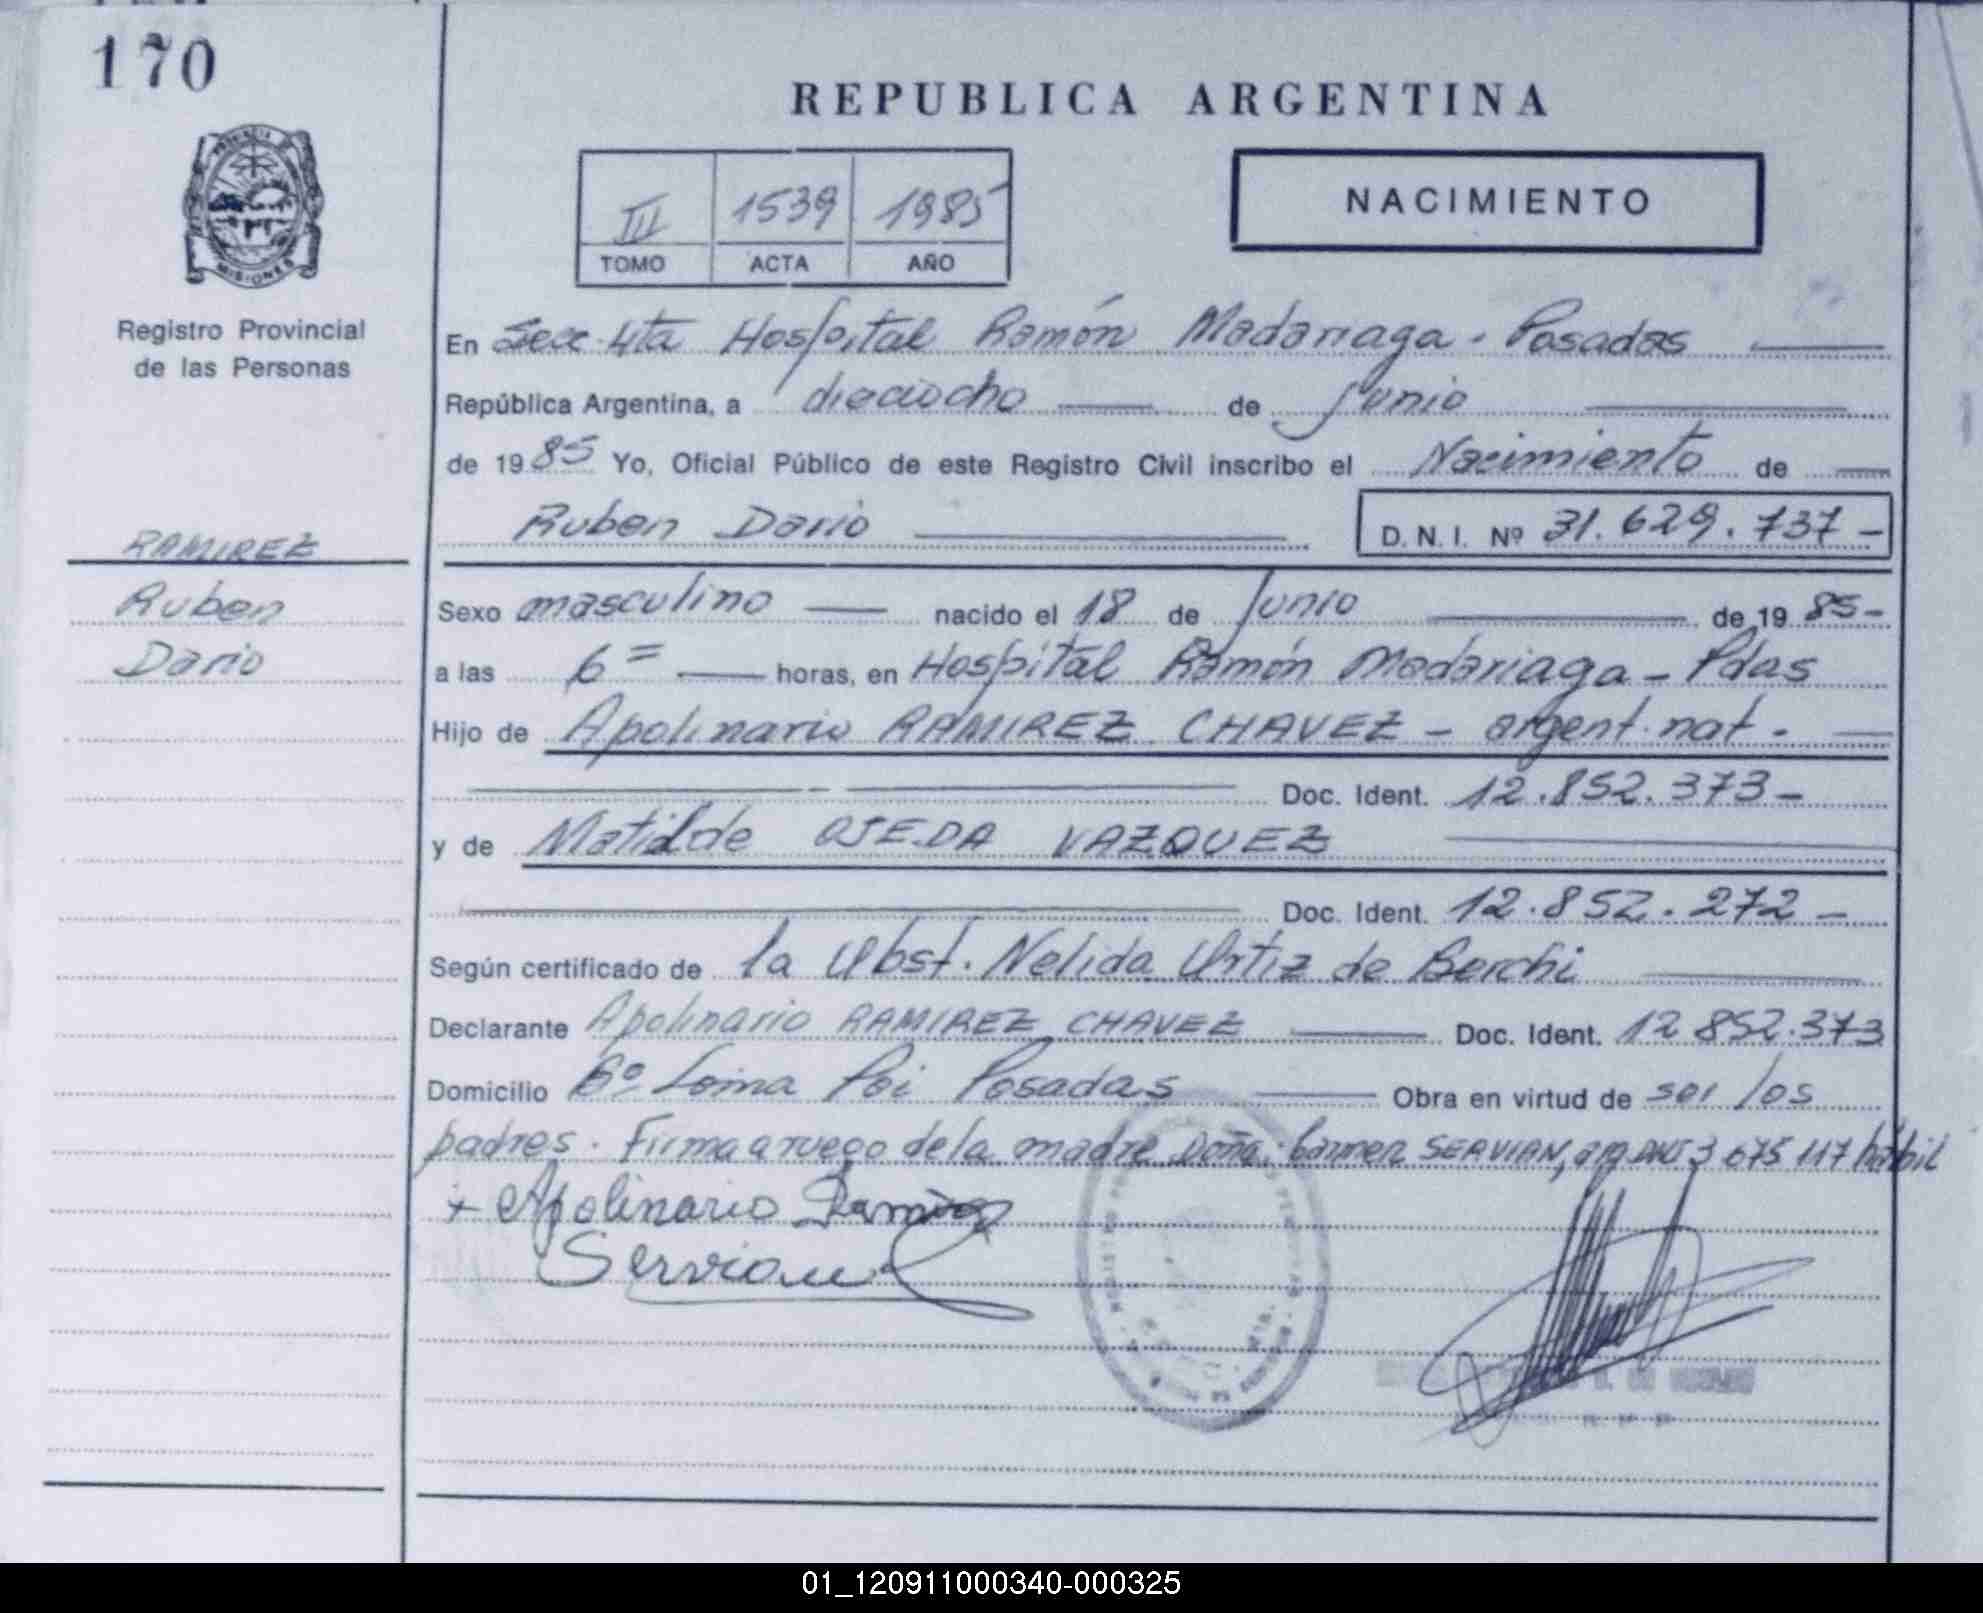 170
REPUBLICA ARGENTINA
III 1539 1985
TOMO ACTA AÑO
NACIMIENTO
MISIONES
Registro Provincial
de las Personas
En Secc. 4ta Hospital Ramón Madariaga. Posadas
República Argentina, a dieciocho de Junio
de 1985 Yo, Oficial Público de este Registro Civil inscribo el Nacimiento de
Ruben Dario D. N. I. Nº 31.629.737-
RAMIREZ
Ruben
Dario
Sexo masculino nacido el 18 de Junio de 1985-
a las 6= horas, en Hospital Ramón Madariaga - Pdas
Hijo de Apolinario RAMIREZ CHAVEZ - argent. nat.
Doc. Ident. 12.852.373-
y de Matilde OJEDA VAZQUEZ
Doc. Ident. 12.852.272-
Según certificado de la Obst. Nelida Ortiz de Berchi
Declarante Apolinario RAMIREZ CHAVEZ Doc. Ident. 12 852.373
Domicilio Bº Loma Poi Posadas Obra en virtud de ser los
padres. Firma a ruego de la madre Doña: Carmen SERVIAN, DNI 3 675 117 hábil
+ Apolinario Ramirez
Servian
01_120911000340-000325